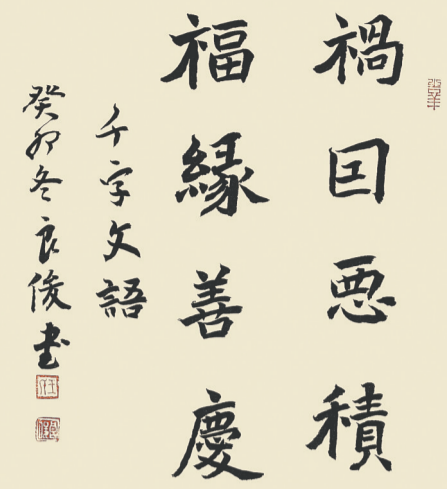 禍因悪積
福緣善慶
千字文語
癸卯冬良俊书